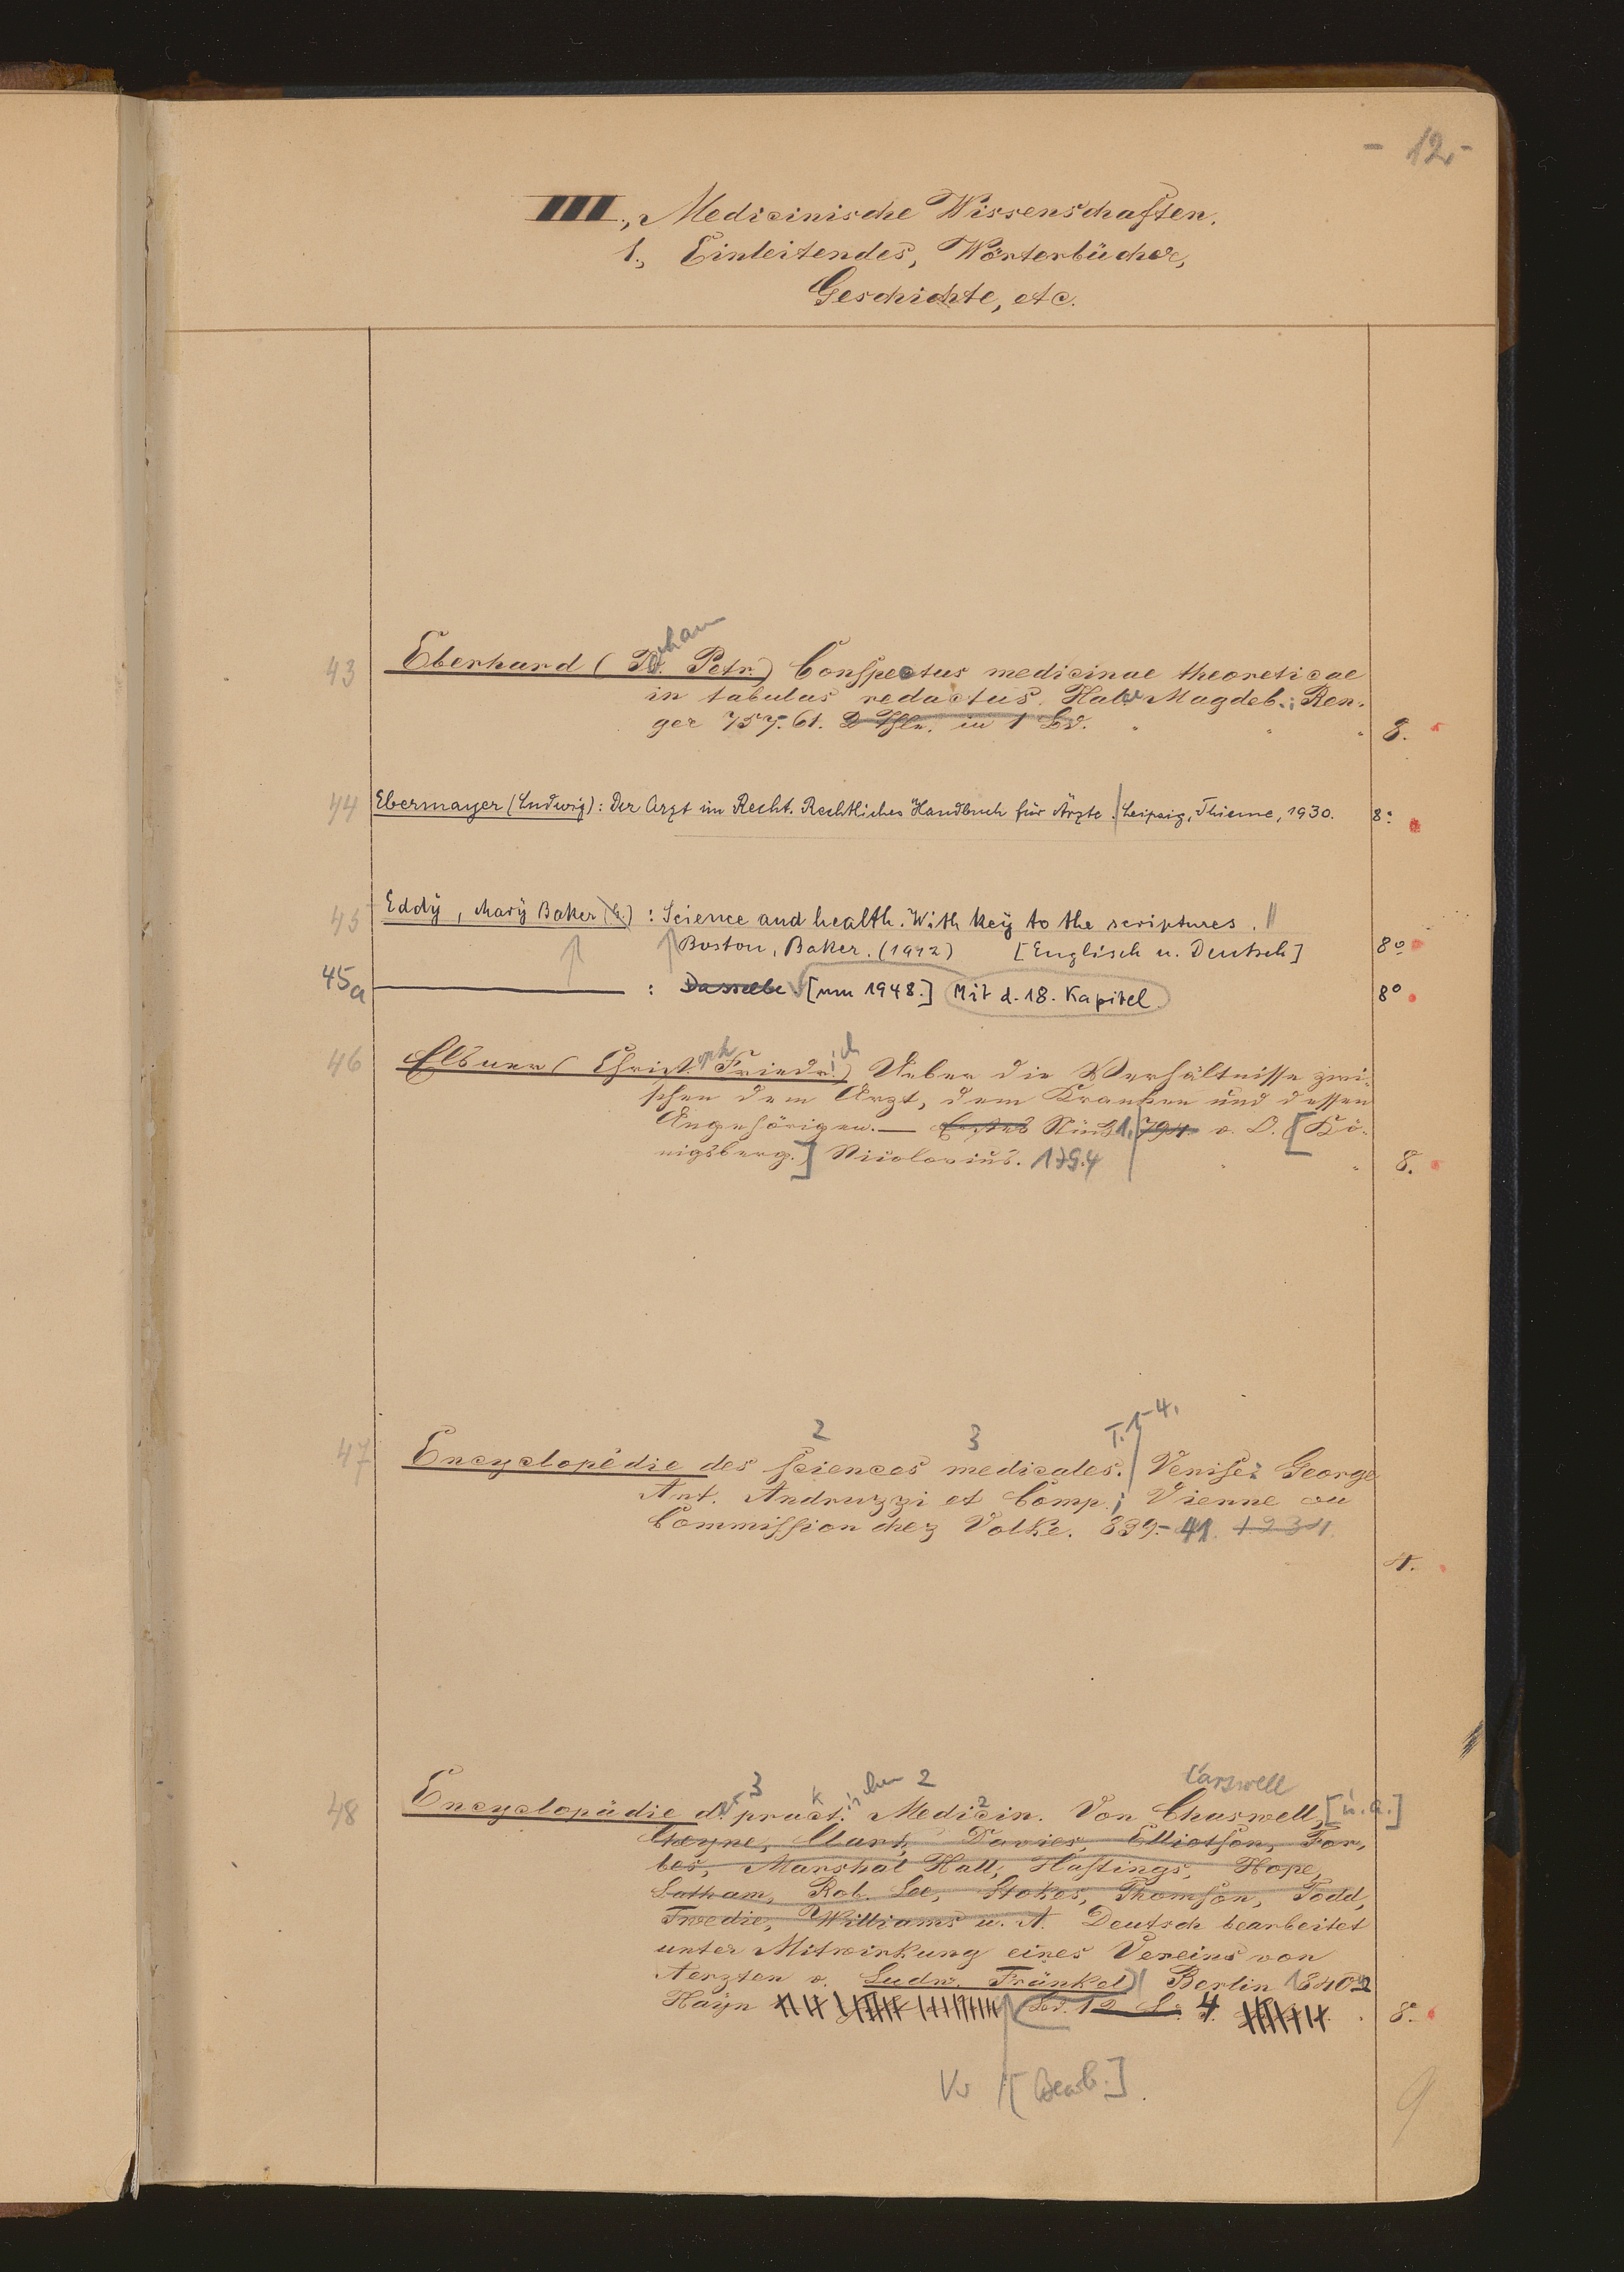 - 12 -
III., Medicinische Wissenschaften.
1., Einleitendes, Wörterbücher,
Geschichte, etc.
43 Eberhard (Johann Petr.) Conspectus medicinae theoreticae
in tabulas redactus. Halae Magdeb.; Ren-
ger 757-61. 2 Thle. in 1 Bd. 8.
44 Ebermayer (Ludwig): Der Arzt im Recht. Rechtliches Handbuch für Ärzte. Leipzig, Thieme, 1930. 8°
45 Eddy, Mary Baker (G.): Science and health. With key to the scriptures. ||
Boston, Baker. (1942) [Englisch u. Deutsch] 8°
45a : Dasselbe [um 1948.] Mit d. 18. Kapitel 8°
46 Elsner (Christoph Friedrich) Ueber die Verhältnisse zwi-
schen dem Arzt, dem Kranken und dessen
Angehörigen. — Erstes Stück 1. 794. o. O. [Kö-
nigsberg.] Nicolovius. 1794 8.
2 3 T. 1-4.
47 Encyclopédie des sciences medicales. Venise: George
Ant. Andruzzi et Comp.; Vienne en
Commission chez Volke. 839-41. 1234.
4.
3 2 Carswell
48 Encyclopädie der praktischen Medicin. Von Charswell, [u. a.]
Cheyne, Clark, Davies, Elliotson, For-
bes, Marshal Hall, Hastings, Hope,
Latham, Rob. Lee, Stokes, Thomson, Todd,
Twedie, Williams u. A. Deutsch bearbeitet
unter Mitwirkung eines Vereins von
Aerzten v. Ludw. Fränkel) Berlin 1840-42
Hayn Bd. 1 2 4. 8°.
[Bearb.]
9